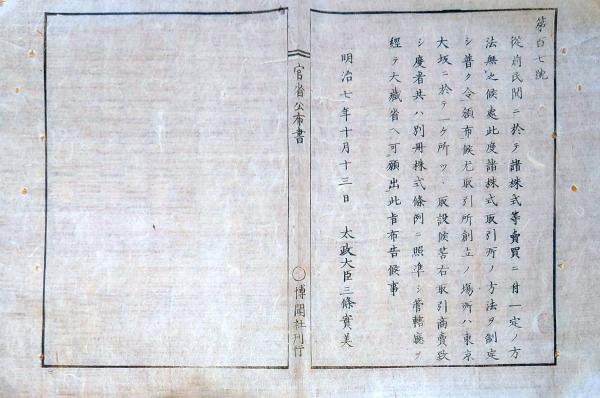 第百七號
從前民間ニ於テ諸株式等賣買ニ付一定ノ方
法無之候處此度諸株式取引所ノ方法ヲ制定
シ普ク令頒布候尤取引所創立ノ場所ハ東京
大坂ニ於テ一ケ所ツヽ取設候筈右取引商賣致
シ度者共ハ別冊株式條例ニ照準シ管轄廳ヲ
經テ大藏省ヘ可願出此旨布告候事
明治七年十月十三日 太政大臣三條實美
官省公布書 ○博聞社刊行